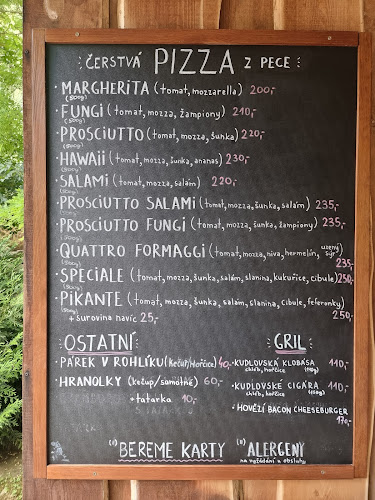 ČERSTVÁ PIZZA Z PECE
· MARGHERITA (tomat, mozzarella) 200,-
(500g)
· FUNGI (tomat, mozza, žampiony) 210,-
(500g)
· PROSCIUTTO (tomat, mozza, šunka) 220,-
(500g)
· HAWAII (tomat, mozza, šunka, ananas) 230,-
(500g)
· SALAMI (tomat, mozza, salám) 220,-
(500g)
· PROSCIUTTO SALAMI (tomat, mozza, šunka, salám) 235,-
(500g)
· PROSCIUTTO FUNGI (tomat, mozza, šunka, žampiony) 235,-
(500g)
· QUATTRO FORMAGGI (tomat, mozza, niva, hermelín, uzený sýr) 235,-
(500g)
· SPECIALE (tomat, mozza, šunka, salám, slanina, kukuřice, cibule) 250,-
(500g)
· PIKANTE (tomat, mozza, šunka, salám, slanina, cibule, feferonky) 250,-
(500g)
+ surovina navíc 25,-
OSTATNÍ
· PÁREK V ROHLÍKU (kečup/hořčice) 40,-
· HRANOLKY (kečup/samotné) 60,-
+ tatarka 10,-
GRIL
· KUDLOVSKÁ KLOBÁSA 110,-
chléb, hořčice
· KUDLOVSKÉ CIGÁRA 110,-
chléb, hořčice
· HOVĚZÍ BACON CHEESEBURGER
170,-
(!) BEREME KARTY
(!) ALERGENY
na vyžádání u obsluhy